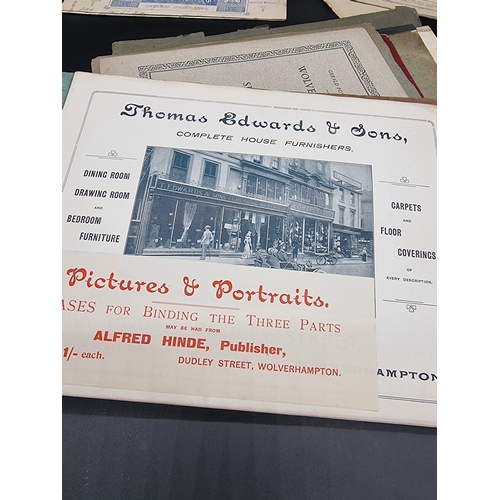 WOLVER
Thomas Edwards & Sons,
COMPLETE HOUSE FURNISHERS,
DINING ROOM
DRAWING ROOM
AND
BEDROOM
FURNITURE
T. EDWARDS & SONS
CARPETS
AND
FLOOR
COVERINGS
OF
EVERY DESCRIPTION.
Pictures & Portraits.
ASES FOR BINDING THE THREE PARTS
MAY BE HAD FROM
ALFRED HINDE, Publisher,
1/- each.
DUDLEY STREET, WOLVERHAMPTON.
AMPTON